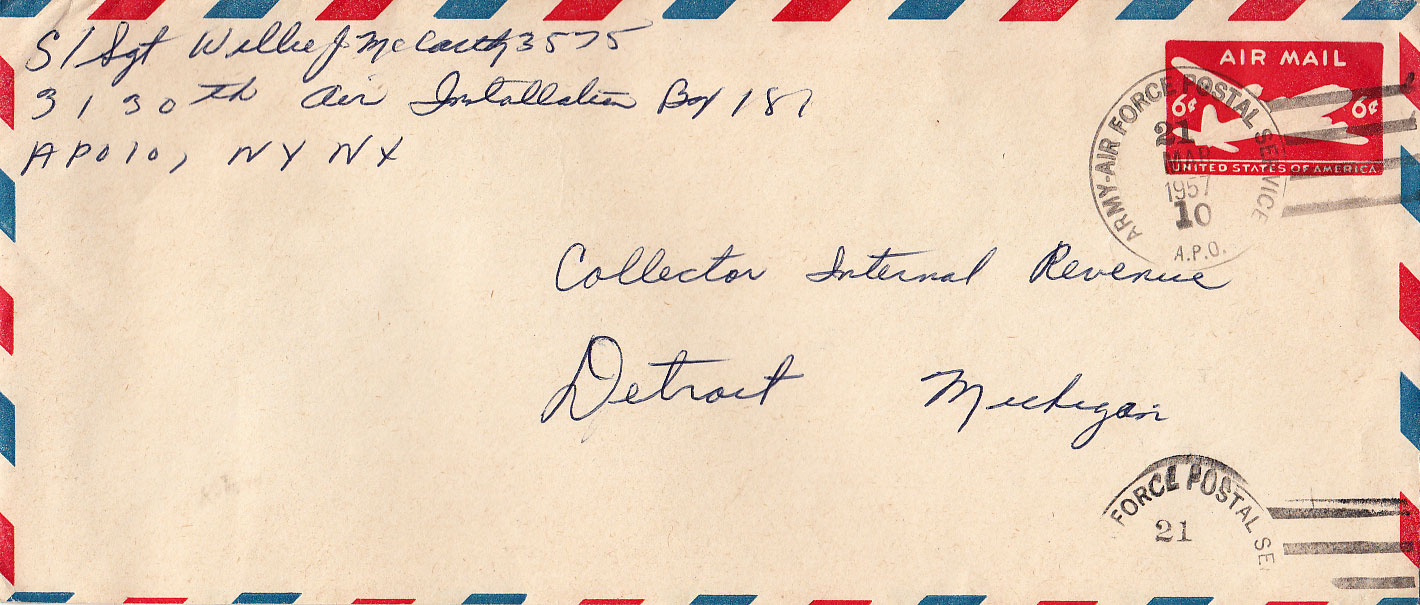 S/Sgt Willie J McCarthy 3575
3130th Air Installation Box 187
APO 10, NY NY
AIR MAIL
6¢ 6¢
UNITED STATES OF AMERICA
ARMY-AIR FORCE POSTAL SERVICE
21
MAR
1957
10
A.P.O.
Collector Internal Revenue
Detroit Michigan
FORCE POSTAL SE
21